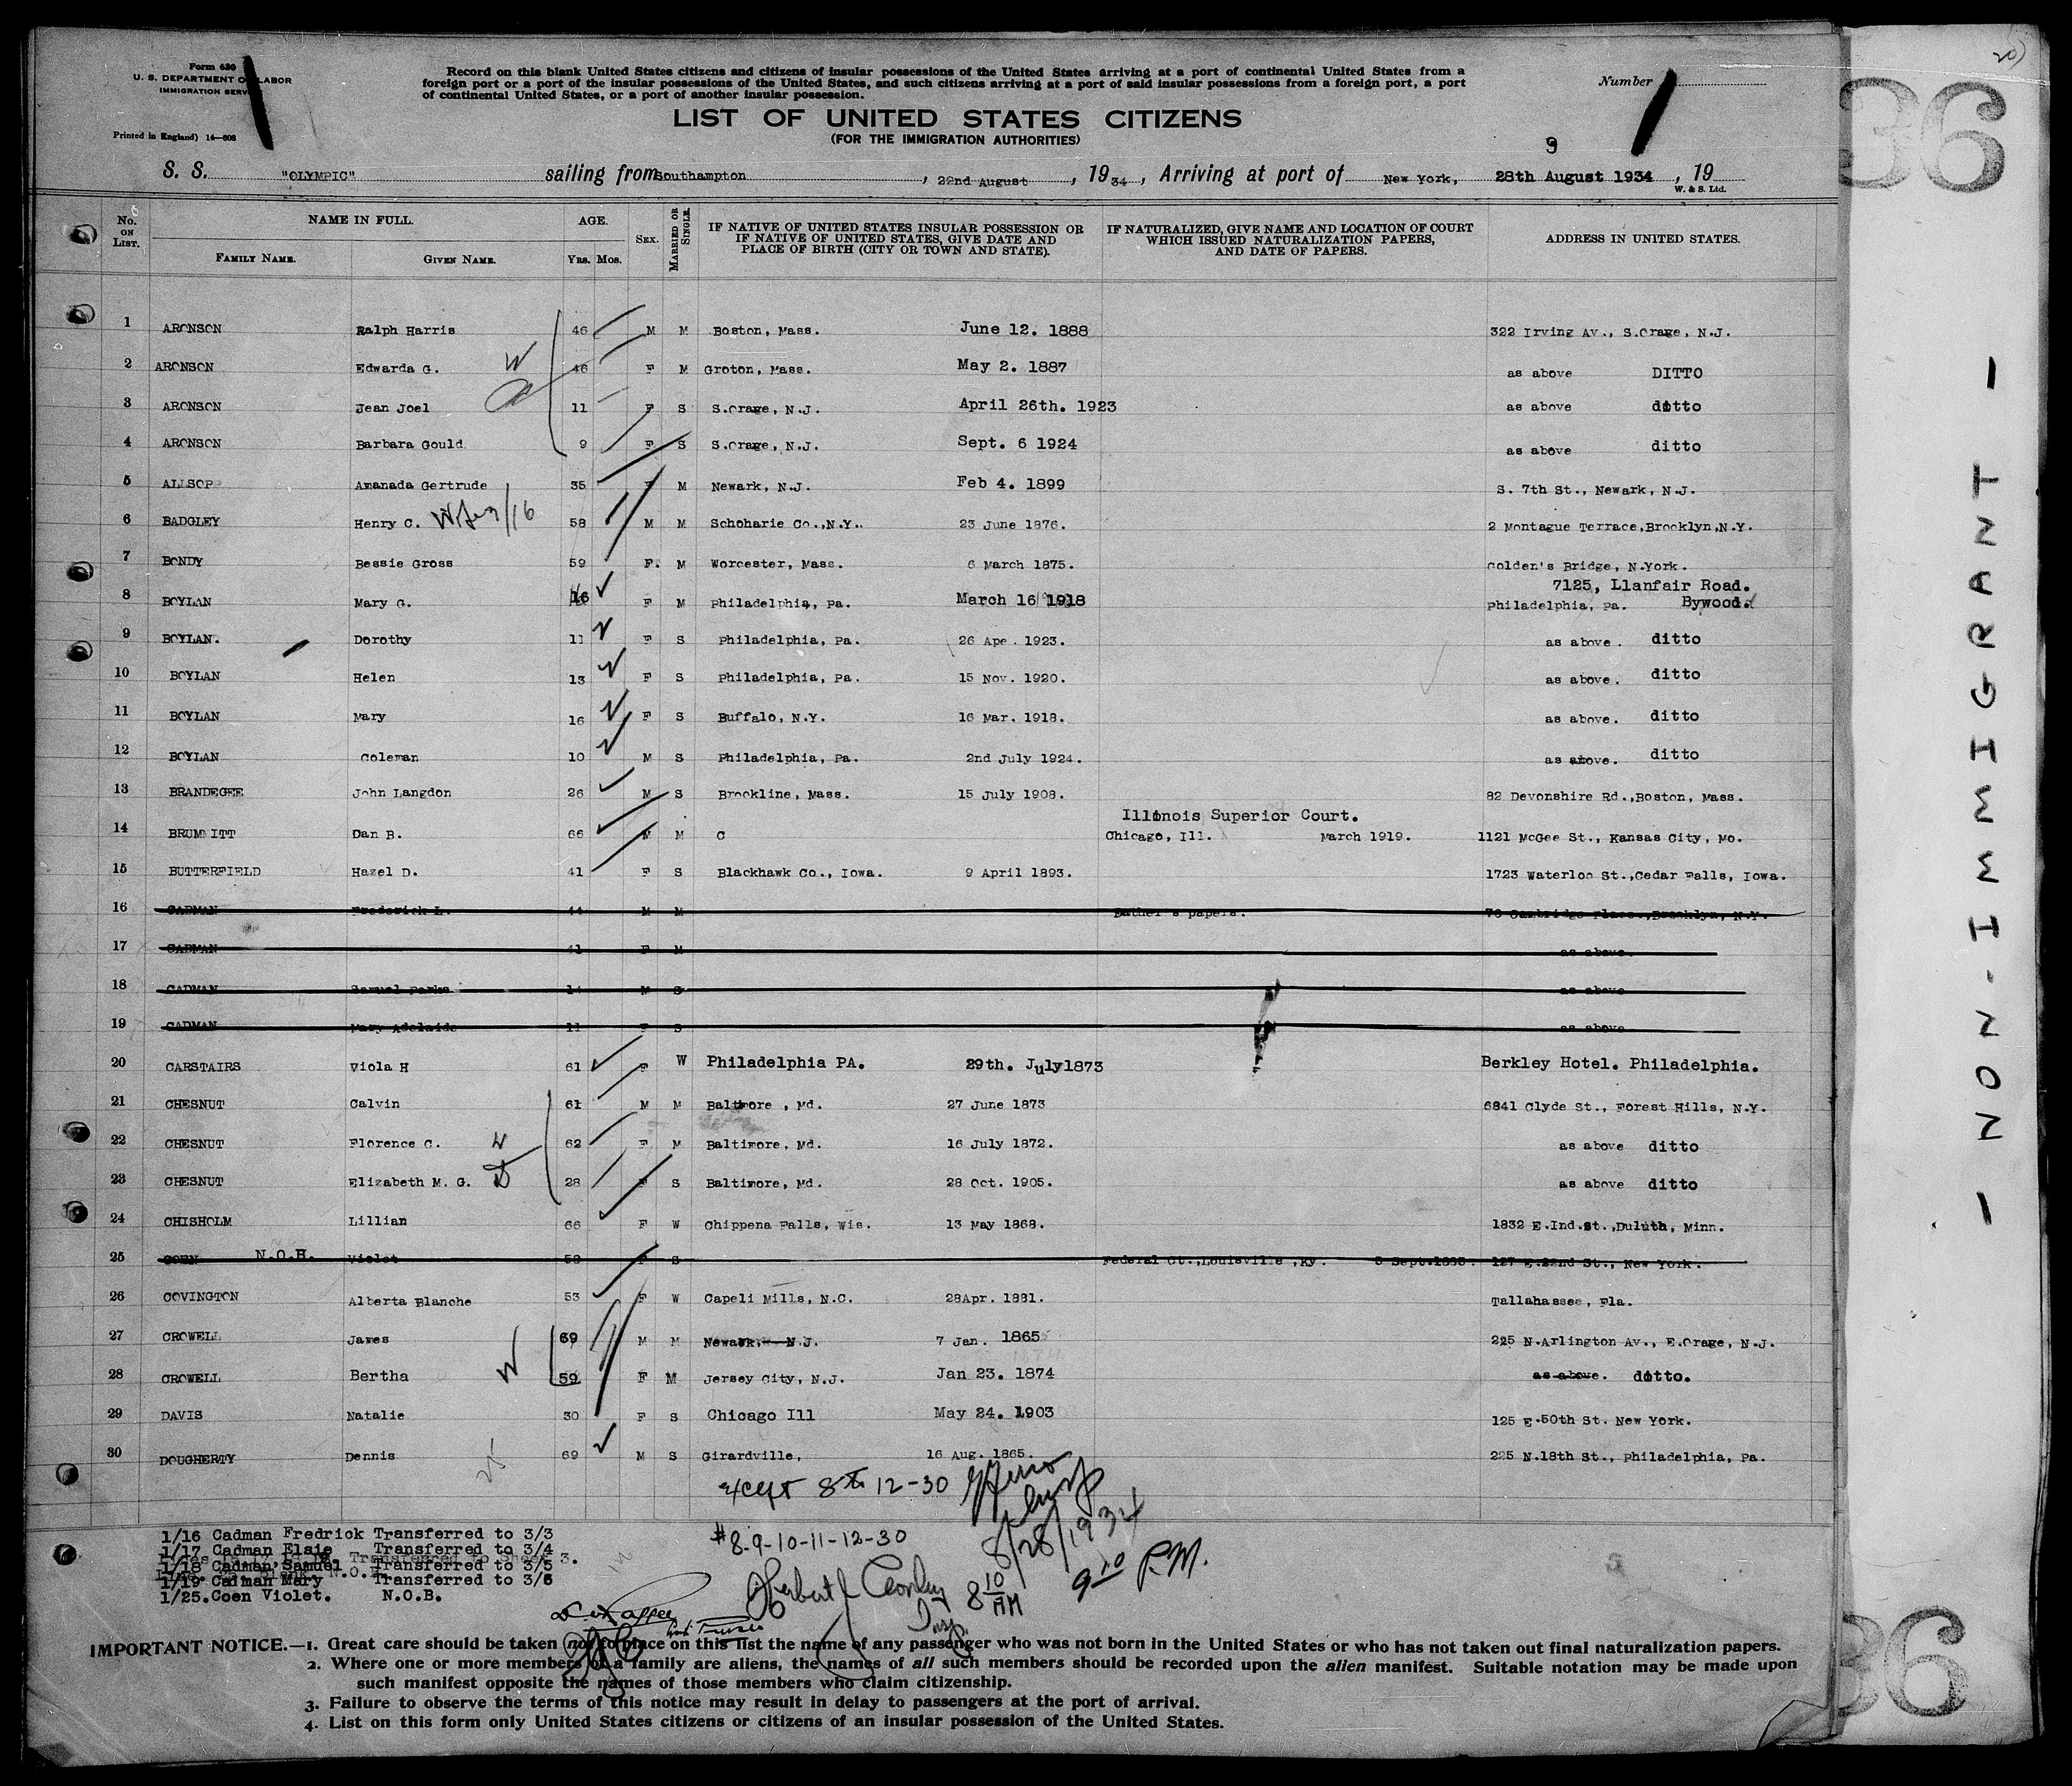 20)
36
Form 630
U. S. DEPARTMENT OF LABOR
IMMIGRATION SERV
Printed in England) 14—808
Record on this blank United States citizens and citizens of insular possessions of the United States arriving at a port of continental United States from a
foreign port or a port of the insular possessions of the United States, and such citizens arriving at a port of said insular possessions from a foreign port, a port
of continental United States, or a port of another insular possession.
Number
LIST OF UNITED STATES CITIZENS
(FOR THE IMMIGRATION AUTHORITIES)
9
S. S. "OLYMPIC" sailing from Southampton, 22nd August, 1934, Arriving at port of New York, 28th August 1934, 19
W. & S. Ltd.
No. ON LIST. NAME IN FULL. FAMILY NAME. GIVEN NAME. AGE. YRS. MOS. SEX. MARRIED OR SINGLE. IF NATIVE OF UNITED STATES INSULAR POSSESSION OR IF NATIVE OF UNITED STATES, GIVE DATE AND PLACE OF BIRTH (CITY OR TOWN AND STATE). IF NATURALIZED, GIVE NAME AND LOCATION OF COURT WHICH ISSUED NATURALIZATION PAPERS, AND DATE OF PAPERS. ADDRESS IN UNITED STATES.
1 ARONSON Ralph Harris 46 M M Boston, Mass. June 12. 1888 322 Irving Av., S.Orage, N.J.
2 ARONSON Edwarda G. W 46 F M Groton, Mass. May 2. 1887 as above DITTO
3 ARONSON Jean Joel 11 F S S.Orage, N.J. April 26th. 1923 as above ditto
4 ARONSON Barbara Gould 9 F S S.Orage, N.J. Sept. 6 1924 as above ditto
5 ALLSOPP Amanada Gertrude 35 F M Newark, N.J. Feb 4. 1899 S. 7th St., Newark, N.J.
6 BADGLEY Henry C. 58 M M Schoharie Co.,N.Y.. 23 June 1876. 2 Montague Terrace,Brooklyn,N.Y.
7 BONDY Bessie Gross 59 F. M Worcester, Mass. 6 March 1875. Golden's Bridge, N.York.
7125, Llanfair Road.
8 BOYLAN Mary G. 16 F M Philadelphia, Pa. March 16 1918 Philadelphia, Pa. Bywood.
9 BOYLAN. Dorothy 11 F S Philadelphia, Pa. 26 Ape. 1923. as above. ditto
10 BOYLAN Helen 13 F S Philadelphia, Pa. 15 Nov. 1920. as above. ditto
11 BOYLAN Mary 16 F S Buffalo, N.Y. 16 Mar. 1918. as above. ditto
12 BOYLAN Coleman 10 M S Philadelphia, Pa. 2nd July 1924. as above. ditto
13 BRANDEGEE John Langdon 26 M S Brookline, Mass. 15 July 1908. 82 Devonshire Rd.,Boston, Mass.
Illinois Superior Court.
14 BRUMMITT Dan B. 66 M M C Chicago, Ill. March 1919. 1121 McGee St., Kansas City, Mo.
15 BUTTERFIELD Hazel D. 41 F S Blackhawk Co., Iowa. 9 April 1893. 1723 Waterloo St.,Cedar Falls, Iowa.
16 CADMAN Frederick L. 44 M M Father's papers. 70 Cambridge Place.,Brooklyn, N.Y.
17 CADMAN 41 F M as above.
18 CADMAN Samuel Parks 14 M S as above
19 CADMAN Mary Adelaide 11 F S as above
20 CARSTAIRS Viola H 61 F W Philadelphia PA. 29th. July1873 Berkley Hotel. Philadelphia.
21 CHESNUT Calvin 61 M M Baltimore , Md. 27 June 1873 6841 Clyde St., Forest Hills, N.Y.
22 CHESNUT Florence C. 62 F M Baltimore, Md. 16 July 1872. as above ditto
23 CHESNUT Elizabeth M. G. 28 F S Baltimore, Md. 28 Oct. 1905. as above ditto
24 CHISHOLM Lillian 66 F W Chippena Falls, Wis. 13 May 1868. 1832 E.Ind.St.,Duluth, Minn.
25 COEN N.O.B. Violet F S Federal Ct.,Louisville ,Ky. 127 E.22nd St., New York.
26 COVINGTON Alberta Blanche 53 F W Capeli Mills, N.C. 28Apr. 1881. Tallahassee, Fla.
27 CROWELL James 69 M M Newark, N.J. 7 Jan. 1865 225 N.Arlington Av., E.Orage, N.J.
28 CROWELL Bertha W 59 F M Jersey City, N.J. Jan 23. 1874 as above. ditto.
29 DAVIS Natalie 30 F S Chicago Ill May 24. 1903 125 E.50th St. New York.
30 DOUGHERTY Dennis 69 M S Girardville, 16 Aug. 1865. 225 N.18th St., Philadelphia, Pa.
except 8 12-30
8/28/1934
#8-9-10-11-12-30
8 10 AM
9 10 P.M.
1/16 Cadman Fredrick Transferred to 3/3
1/17 Cadman Elsie Transferred to 3/4
1/18 Cadman Samuel Transferred to 3/5
1/19 Cadman Mary Transferred to 3/6
1/25.Coen Violet. N.O.B.
IMPORTANT NOTICE.—1. Great care should be taken not to place on this list the name of any passenger who was not born in the United States or who has not taken out final naturalization papers.
2. Where one or more members of a family are aliens, the names of all such members should be recorded upon the alien manifest. Suitable notation may be made upon
such manifest opposite the names of those members who claim citizenship.
3. Failure to observe the terms of this notice may result in delay to passengers at the port of arrival.
4. List on this form only United States citizens or citizens of an insular possession of the United States.
- NON-IMMIGRANT -
36